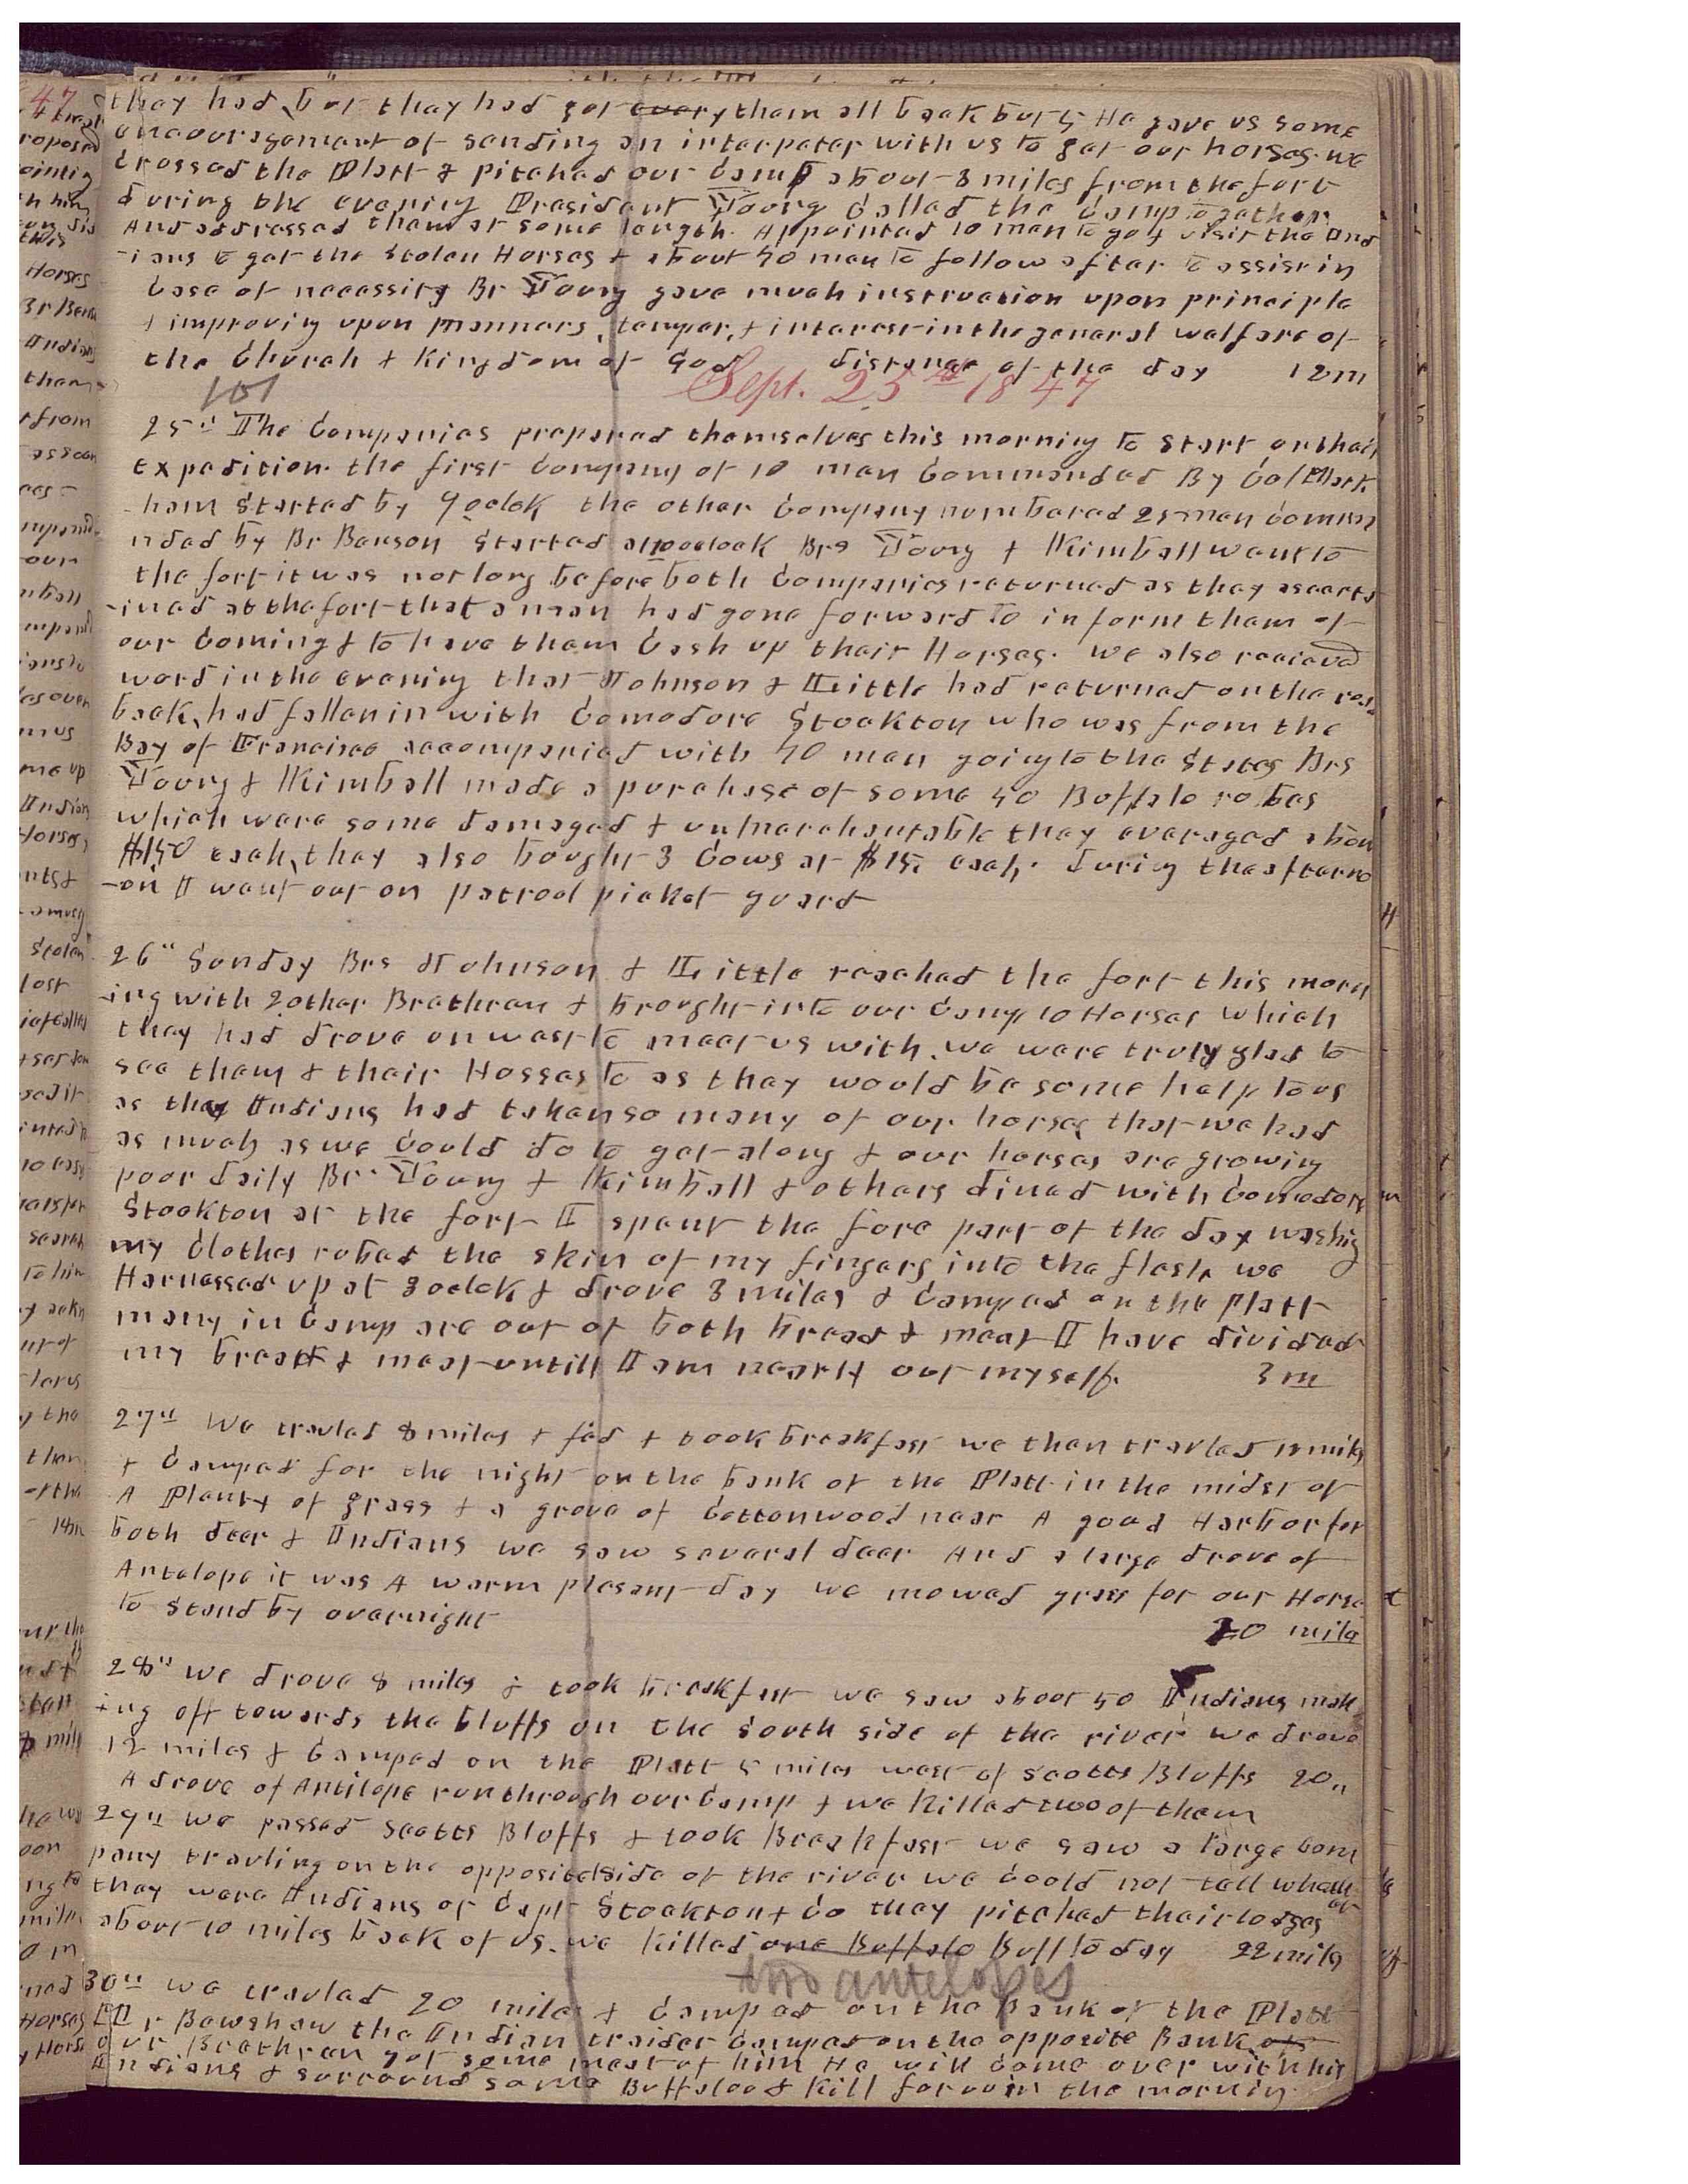 they had, but they had got every them all back but 5 He gave us some
encouragement of sending an interpeter with us to get our horses. we
crossed the Platt & pitched our Camp about 3 miles from the fort
during the evening President Young Called the Camp togather
And addressed them at some length. Appointed 10 men to go & visit the Ind
-ians to get the Stolen Horses & about 40 men to follow after to assist in
Case of necessity Br Young gave much instruction upon principle
& improving upon manners, temper, & interest in the general walfare of
the Church & Kingdom of God distance of the day 12m
101 Sept. 25th 1847
25" The Companies prepared themselves this morning to start on their
Expedition. the first Company of 10 men Commanded By Col Mark
-ham Started by 9 oclok the other Company numbered 25 men Comma
nded by Br Benson Started at 10 oclock Brs Young & Kimball went to
the fort it was not long before both Companies returned as they ascerta
-ined at the fort that a man had gone forward to inform them of
our Coming & to have them Cash up their Horses. We also recieved
word in the evening that Johnson & Little had returned on the road
back, had fallen in with Comodore Stockton who was from the
Bay of Francisco accompanied with 40 men going to the States Brs
Young & Kimball made a purchase of some 40 Buffalo robes
which were some damaged & unmarchantable they averaged about
$1.50 each, they also bought 3 Cows at $15 each. During the afterno
-on I went out on patrool picket guard
26" Sunday Brs Johnson & Little reached the fort this morn
-ing with 2 other Brethren & brought into our Camp 10 Horses which
they had drove on west to meet us with. we were truly glad to
see them & their Hosses to as they would be some help to us
as they Indians had taken so many of our horses that we had
as much as we Could do to get along & our horses are growing
poor daily Br. Young & Kimball & others dined with Comodore
Stockton at the fort I spent the fore part of the day washing
my Clothes robed the skin of my fingers into the flesh we
Harnessed up at 3 oclok & drove 3 miles & Camped on the Platt
many in Camp are out of both bread & meat I have divided
my bread & meat untill I am nearly out myself. 3 m
27" We travled 8 miles & fed & took breakfast we then travled 12 miles
& Camped for the night on the bank of the Platt in the midst of
A Planty of grass & a grove of Cottonwood near A good Harbor for
both deer & Indians we saw several deer And a large drove of
Antelope it was A warm plesant day we mowed grass for our Horse
to stand by overnight 20 mile
28" we drove 8 miles & took breakfast we saw about 50 Indians mak
-ing off towards the bluffs on the South side of the river we drove
12 miles & Camped on the Platt 5 miles west of Scotts Bluffs 20"
A drove of Antilope run through our Camp & we killed two of them
29" we passed Scotts Bluffs & took Breakfast we saw a large Com
pany travling on the opposite side of the river we Could not tell whether
they were Indians or Capt Stockton & Co they pitched their lodges
about 10 miles back of us. we killed one Buffalo Bull to day 22 mile
two antelopes
30" we travled 20 miles & Camped on the Bank of the Platt
Mr Bawshaw the Indian traider Camped on the opposite Bank
our Brethren got some meat of him He will Come over with his
Indians & surround some Buffaloo & Kill for us in the morning